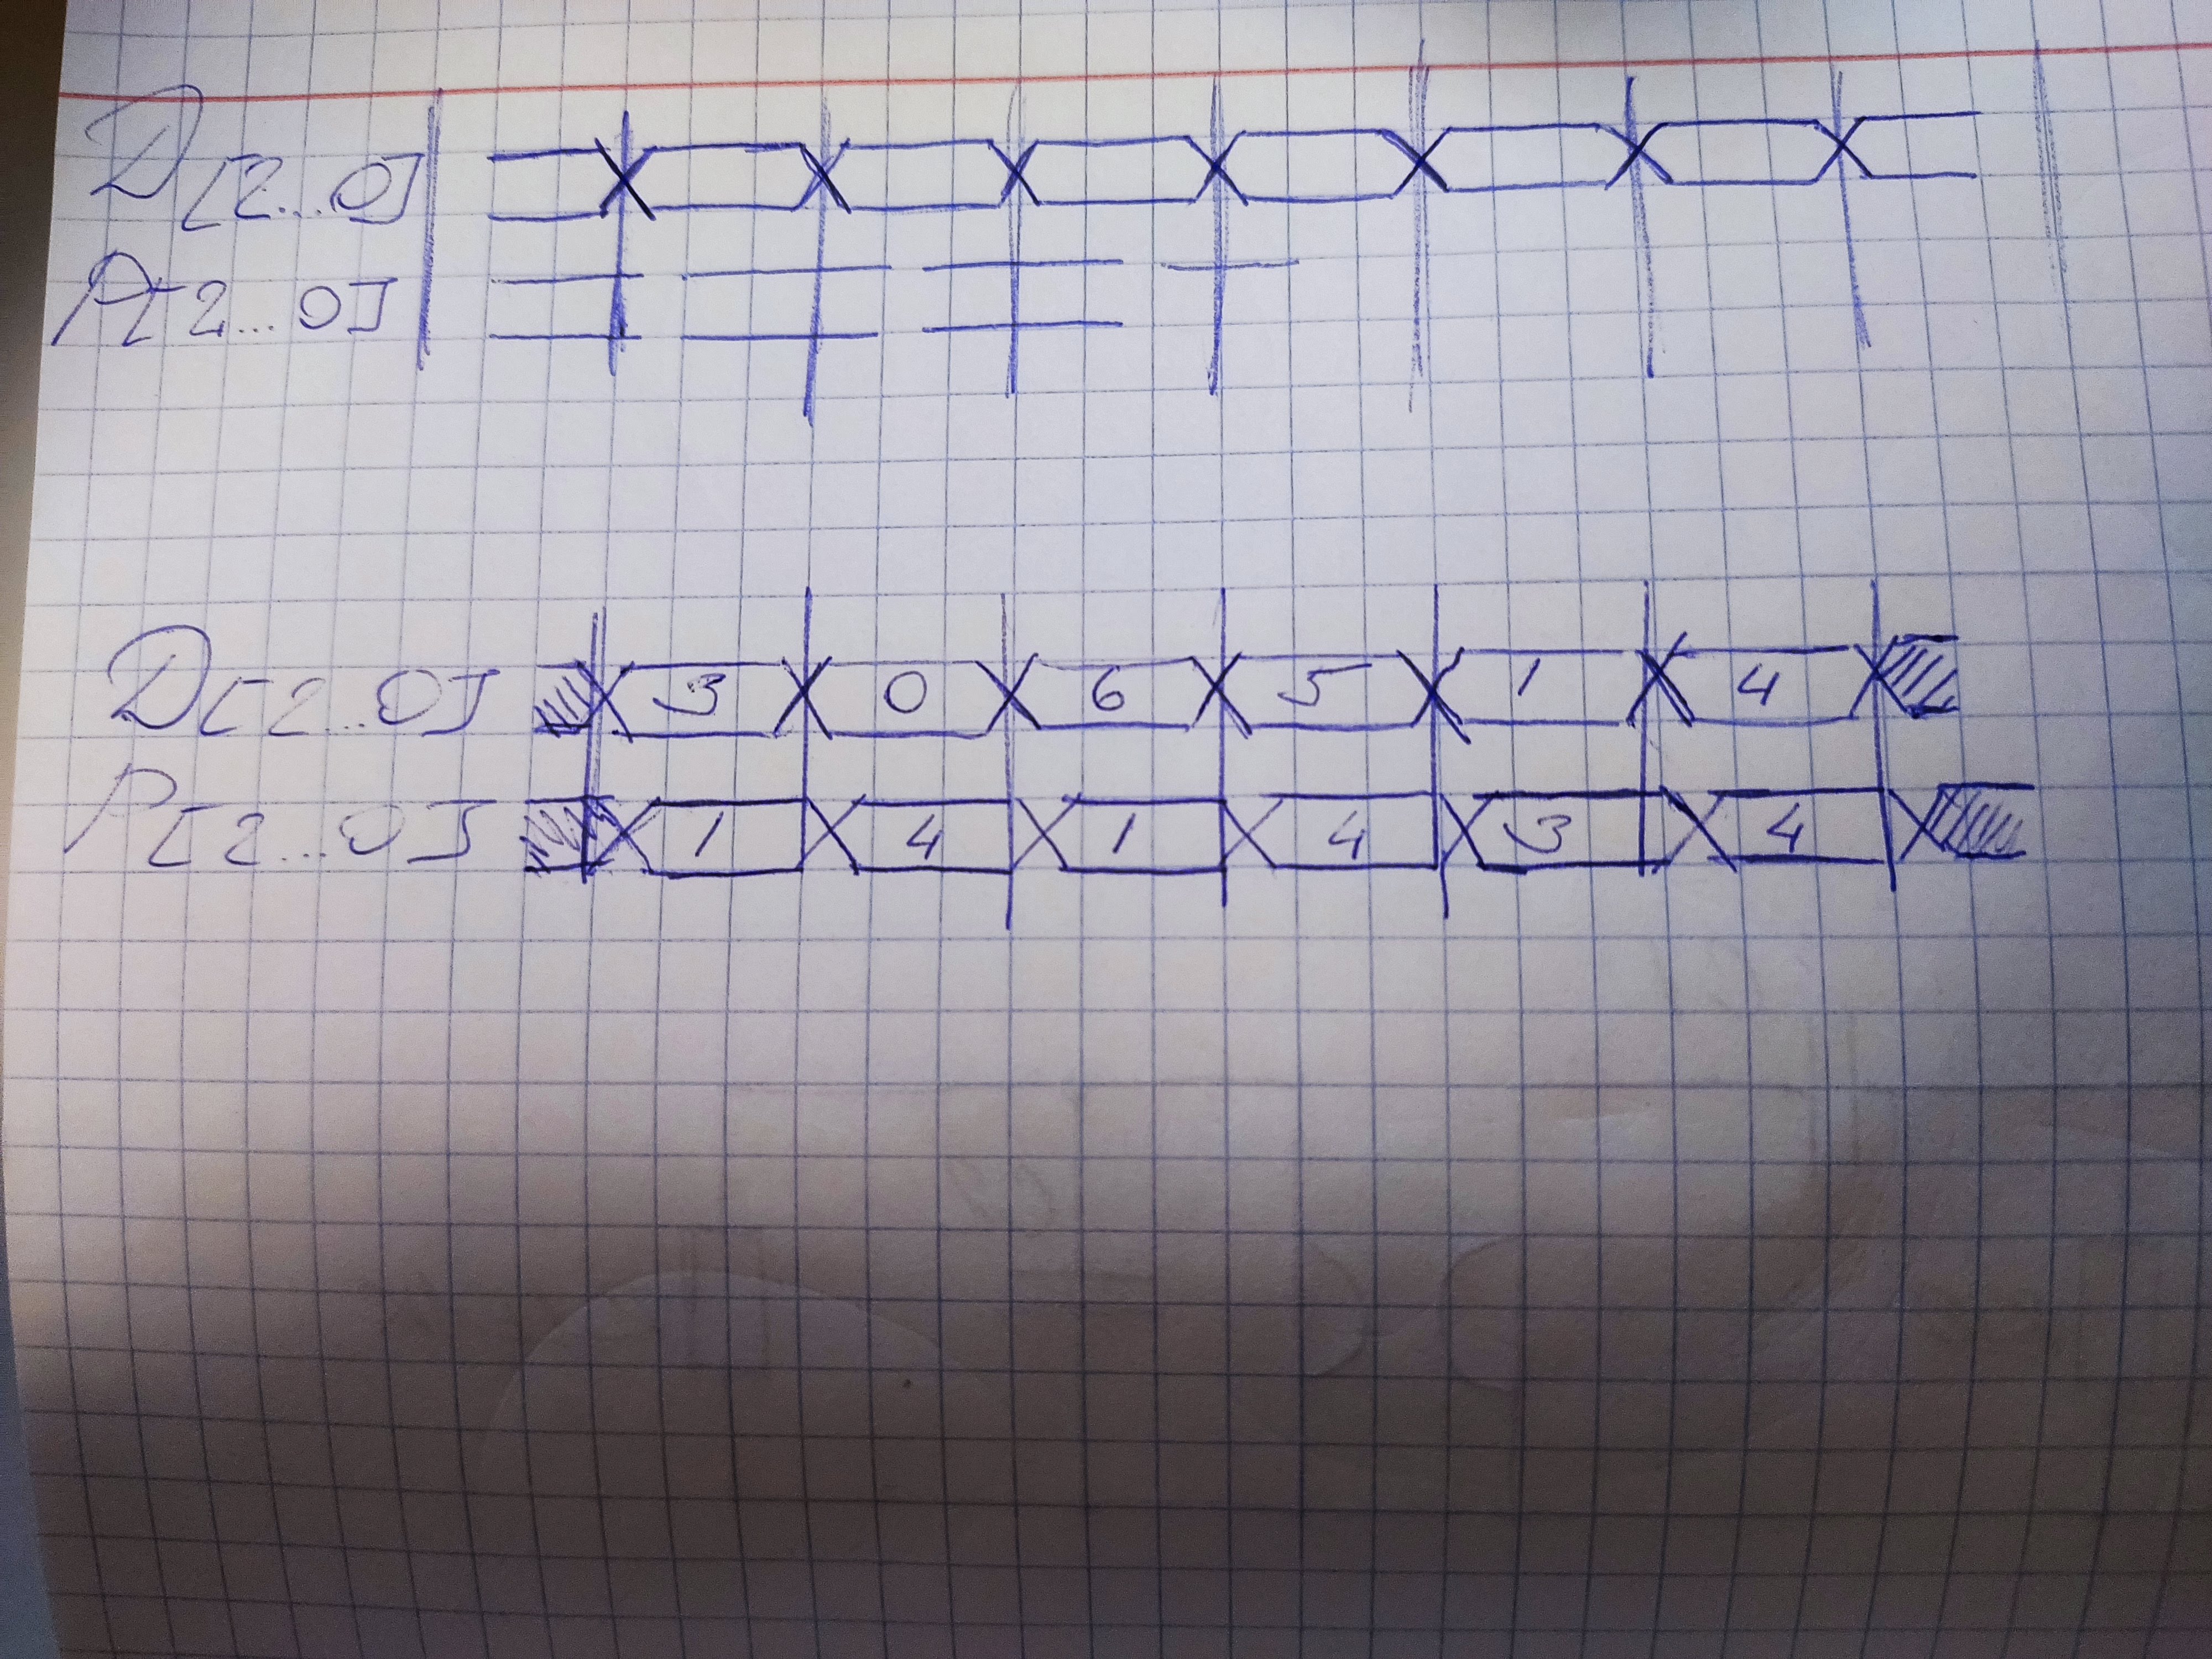 D[2...0]
P[2...0]
D[2...0] 3 0 6 5 1 4
P[2...0] 1 4 1 4 3 4